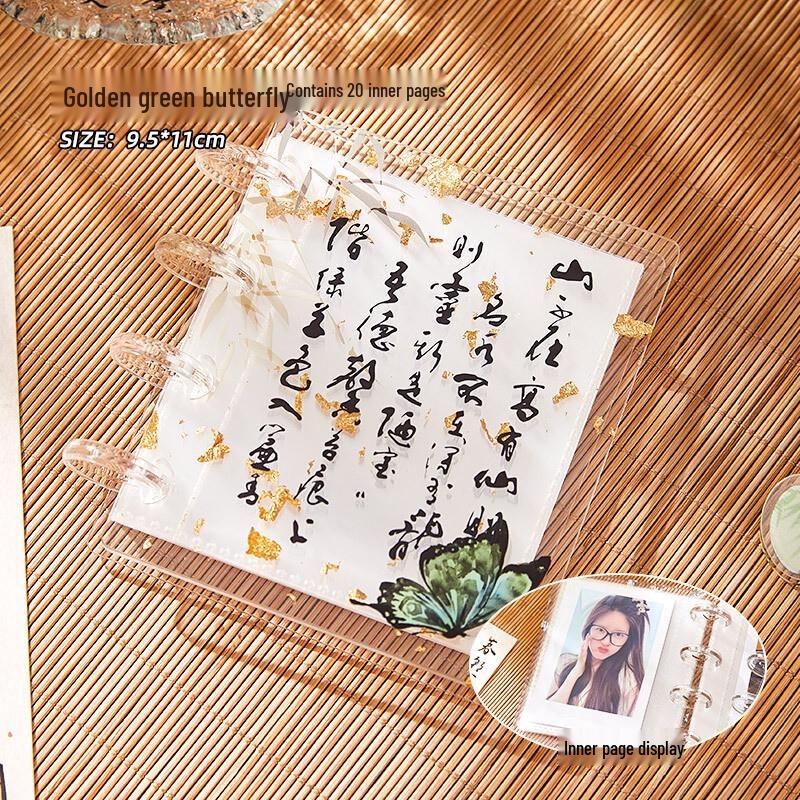 Golden green butterfly
Contains 20 inner pages
SIZE: 9.5*11cm
山不在高有仙則
名水不在深有龍
則靈斯是陋室
吾德馨苔痕上
階綠草色入簾青
Inner page display